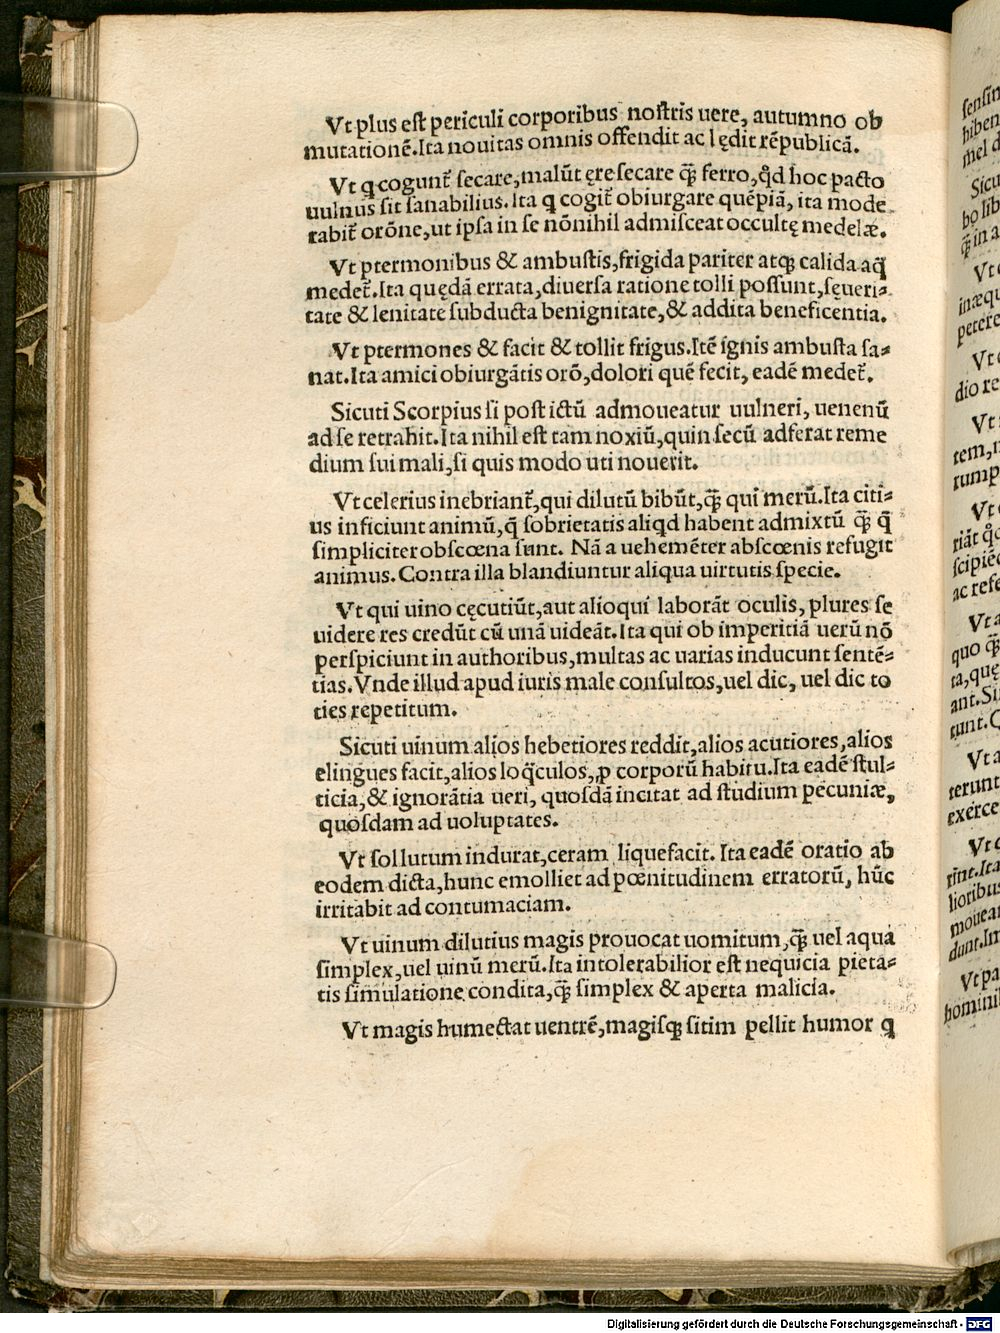 Vt plus eſt periculi corporibus noſtris uere, autumno ob
mutationē.Ita nouitas omnis offendit ac lędit rēpublicā.
Vt q cogunt̃ ſecare,malūt ęre ſecare q̃ȝ ferro,q̊d hoc pacto
uulnus ſit ſanabilius.Ita q cogit̃ obiurgare quēpiā, ita mode
rabit̃ orōne,ut ipſa in ſe nōnihil admiſceat occultę medelæ.
Vt ꝑtermonibus & ambuſtis,frigida pariter atqȝ calida aq̃
medet̃.Ita quędā errata,diuerſa ratione tolli poſſunt,ſęueri⸗
tate & lenitate ſubducta benignitate,& addita beneficentia.
Vt ꝑtermones & facit & tollit frigus.Itē ignis ambuſta ſa⸗
nat.Ita amici obiurgātis orō,dolori quē fecit, eadē medet̃.
Sicuti Scorpius ſi poſt ictū admoueatur uulneri, uenenū
ad ſe retrahit.Ita nihil eſt tam noxiū,quin ſecū adferat reme
dium ſui mali,ſi quis modo uti nouerit.
Vt celerius inebriant̃,qui dilutū bibūt,q̃ȝ qui merū.Ita citi⸗
us inficiunt animū,q̄ ſobrietatis aliqd habent admixtū q̃ȝ q̄
ſimpliciter obſcœna ſunt. Nā a uehemēter abſcœnis refugit
animus.Contra illa blandiuntur aliqua uirtutis ſpecie.
Vt qui uino cęcutiūt,aut alioqui laborāt oculis, plures ſe
uidere res credūt cū unā uideāt.Ita qui ob imperitiā uerū nō
perſpiciunt in authoribus,multas ac uarias inducunt ſentē⸗
tias.Vnde illud apud iuris male conſultos,uel dic, uel dic to
ties repetitum.
Sicuti uinum alios hebetiores reddit,alios acutiores,alios
elingues facit,alios loq̃culos,ꝓ corporū habitu.Ita eadē ſtul⸗
ticia,& ignorātia ueri, quoſdā incitat ad ſtudium pecuniæ,
quoſdam ad uoluptates.
Vt ſol lutum indurat,ceram liquefacit. Ita eadē oratio ab
eodem dicta,hunc emolliet ad pœnitudinem erratorū, hūc
irritabit ad contumaciam.
Vt uinum dilutius magis prouocat uomitum,q̃ȝ uel aqua
ſimplex,uel uinū merū.Ita intolerabilior eſt nequicia pieta⸗
tis ſimulatione condita,q̃ȝ ſimplex & aperta malicia.
Vt magis humectat uentrē,magiſqȝ ſitim pellit humor q
Digitalisierung gefördert durch die Deutsche Forschungsgemeinschaft - DFG